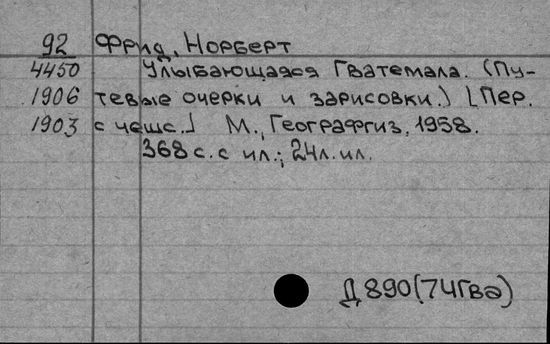 92 Фрид, Норберт
4450 Улыбающаяся Гватемала. (Пу-
1906 тевые очерки и зарисовки.) [Пер.
1903 с чешс.] М., Географгиз, 1958.
368 с. с ил.; 24л. ил.
Д 890(74Гва)